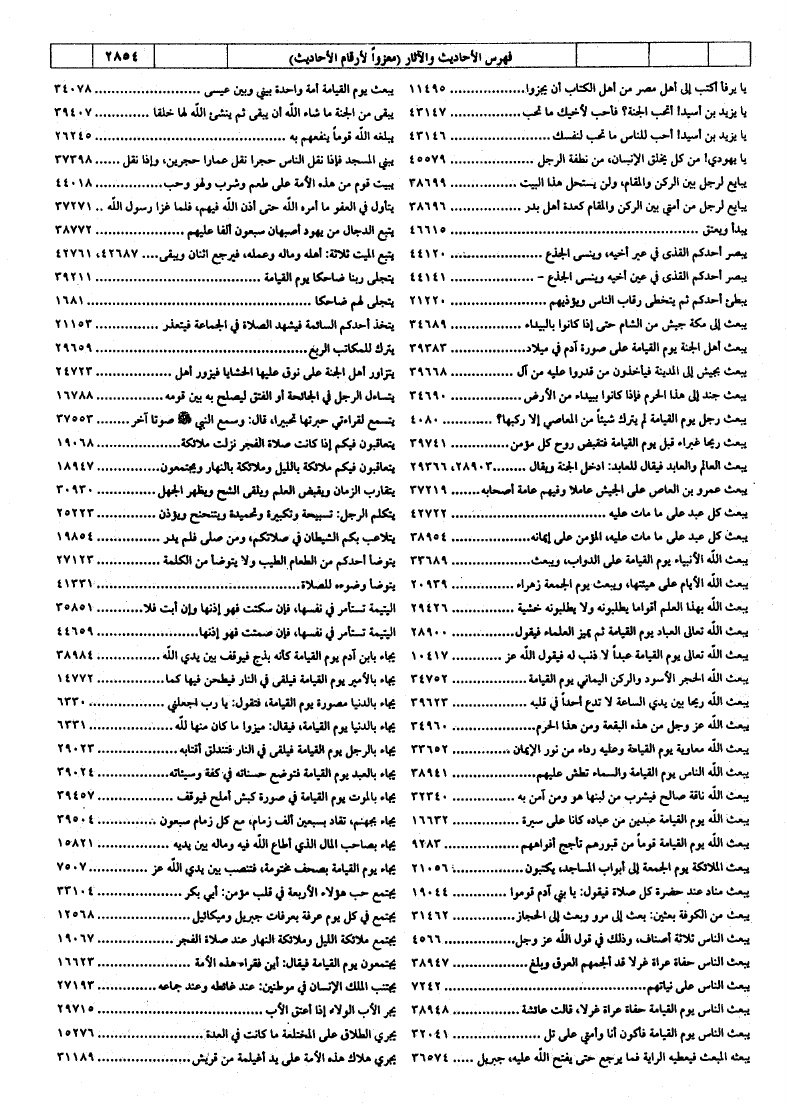 فهرس الأحاديث والآثار (معزواً لأرقام الأحاديث)
٢٨٥٤
يا يرفأ أكتب إلى أهل مصر من أهل الكتاب أن يجزوا ........ ١١٤٩٥
يا يزيد بن أسيد! أتحب الجنة؟ فأحب لأخيك ما تحب ........ ٤٣١٤٧
يا يزيد بن أسيد! أحب للناس ما تحب لنفسك ........ ٤٣١٤٦
يا يهودي! من كل يخلق الإنسان، من نطفة الرجل ........ ٤٥٥٧٩
يبايع لرجل بين الركن والمقام، ولن يستحل هذا البيت ........ ٣٨٦٩٩
يبايع لرجل من أمتي بين الركن والمقام كعدة أهل بدر ........ ٣٨٦٩٦
يبدأ ويعتق ........ ٤٦٦١٥
يبصر أحدكم القذى في عبر أخيه، وينسى الجذع ........ ٤٤١٢٠
يبصر أحدكم القذى في عين أخيه وينسى الجذع – ........ ٤٤١٤١
يبطئ أحدكم ثم يتخطى رقاب الناس ويؤذيهم ........ ٢١٢٢٠
يبعث إلى مكة جيش من الشام حتى إذا كانوا بالبيداء ........ ٣٤٦٨٩
يبعث أهل الجنة يوم القيامة على صورة آدم في ميلاد ........ ٣٩٣٨٣
يبعث بجيش إلى المدينة فيأخذون من قدروا عليه من آل ........ ٣٩٦٦٨
يبعث جند إلى هذا الحرم فإذا كانوا ببيداء من الأرض ........ ٣٤٦٩٠
يبعث رجل يوم القيامة لم يترك شيئاً من المعاصي إلا ركبها؟ ........ ٤٠٨٠
يبعث ريحا غبراء قبل يوم القيامة فتقبض روح كل مؤمن ........ ٣٩٧٤١
يبعث العالم والعابد فيقال للعابد: ادخل الجنة ويقال ........ ٢٨٩٠٣، ٢٩٣٦٦
يبعث عمرو بن العاص على الجيش عاملا وفيهم عامة أصحابه ........ ٣٧٢١٩
يبعث كل عبد على ما مات عليه ........ ٤٢٧٢٢
يبعث كل عبد على ما مات عليه، المؤمن على إيمانه ........ ٣٨٩٥٤
يبعث الله الأنبياء يوم القيامة على الدواب، ويبعث ........ ٣٣٦٨٩
يبعث الله الأيام على هيئتها، ويبعث يوم الجمعة زهراء ........ ٢٠٩٣٩
يبعث الله بهذا العلم أقواما يطلبونه ولا يطلبونه خشية ........ ٢٩٤٢٦
يبعث الله تعالى العباد يوم القيامة ثم يميز العلماء فيقول ........ ٢٨٩٠٠
يبعث الله تعالى يوم القيامة عبداً لا ذنب له فيقول الله عز ........ ١٠٤١٧
يبعث الله الحجر الأسود والركن اليماني يوم القيامة ........ ٣٤٧٥٢
يبعث الله ريحا بين يدي الساعة لا تدع أحداً في قلبه ........ ٣٩٦٢٣
يبعث الله عز وجل من هذه البقعة ومن هذا الحرم ........ ٣٤٩٦٠
يبعث الله معاوية يوم القيامة وعليه رداء من نور الإيمان ........ ٣٣٦٥٢
يبعث الله الناس يوم القيامة والسماء تطش عليهم ........ ٣٨٩٤١
يبعث الله ناقة صالح فيشرب من لبنها هو ومن آمن به ........ ٣٢٣٤٠
يبعث الله يوم القيامة عبدين من عباده كانا على سيرة ........ ١٦٦٣٢
يبعث الله يوم القيامة قوماً من قبورهم تأجج أفواههم ........ ٩٢٨٣
يبعث الملائكة يوم الجمعة إلى أبواب المساجد، يكتبون ........ ٢١٠٥٦
يبعث مناد عند حضرة كل صلاة فيقول: يا بني آدم قوموا ........ ١٩٠٤٤
يبعث من الكوفة بعثين: بعث إلى مرو وبعث إلى الحجاز ........ ٣١٤٦٢
يبعث الناس ثلاثة أصناف، وذلك في قول الله عز وجل ........ ٤٥٦٦
يبعث الناس حفاة عراة غرلا قد ألجمهم العرق وبلغ ........ ٣٨٩٤٧
يبعث الناس على نياتهم ........ ٧٢٤٢
يبعث الناس يوم القيامة حفاة عراة غرلا، قالت عائشة ........ ٣٨٩٤٨
يبعث الناس يوم القيامة فأكون أنا وأمتي على تل ........ ٣٢٠٤١
يبعثه المبعث فيعطيه الراية فما يرجع حتى يفتح الله عليه، جبريل ..... ٣٦٥٧٤
يبعث يوم القيامة أمة واحدة بيني وبين عيسى ........ ٣٤٠٧٨
يبقى من الجنة ما شاء الله أن يبقى ثم ينشئ الله لها خلقا ........ ٣٩٤٠٧
يبلغه الله قوماً ينفعهم به ........ ٢٦٢٤٥
يبني المسجد فإذا نقل الناس حجرا نقل عمارا حجرين، وإذا نقل ..... ٣٧٣٩٨
يبيت قوم من هذه الأمة على طعم وشرب ولهو وحب ........ ٤٤٠١٨
يتأول في العفو ما أمره الله حتى أذن الله فيهم، فلما غزا رسول الله .. ٣٧٢٧١
يتبع الدجال من يهود أصبهان سبعون ألفا عليهم ........ ٣٨٧٧٢
يتبع الميت ثلاثة: أهله وماله وعمله، فيرجع اثنان ويبقى.... ٤٢٦٨٧، ٤٢٧٦١
يتجلى ربنا ضاحكا يوم القيامة ........ ٣٩٢١١
يتجلى لهم ضاحكا ........ ١٦٨١
يتخذ أحدكم السائمة فيشهد الصلاة في الجماعة فيتعذر ........ ٢١١٥٣
يترك للمكاتب الربع ........ ٢٩٦٥٩
يتزاور أهل الجنة على نوق عليها الحشايا فيزور أهل ........ ٢٤٧٢٣
يتساءل الرجل في الجائحة أو الفتق ليصلح به بين قومه ........ ١٦٧٨٨
يتسمع لقراءتي حبرتها تحبيرا، قال: وسمع النبي ﷺ صوتا آخر ........ ٣٧٥٥٣
يتعاقبون فيكم إذا كانت صلاة الفجر نزلت ملائكة ........ ١٩٠٦٨
يتعاقبون فيكم ملائكة بالليل وملائكة بالنهار ويجتمعون ........ ١٨٩٤٧
يتقارب الزمان ويقبض العلم ويلقى الشح ويظهر الجهل ........ ٣٠٩٣٠
يتكلم الرجل: تسبيحة وتكبيرة وتحميدة ويتنحنح ويؤذن ........ ٢٥٢٢٣
يتلاعب بكم الشيطان في صلاتكم، ومن صلى فلم يدر ........ ١٩٨٥٤
يتوضأ أحدكم من الطعام الطيب ولا يتوضأ من الكلمة ........ ٢٧١٢٣
يتوضأ وضوءه للصلاة ........ ٤١٣٣١
اليتيمة تستأمر في نفسها، فإن سكتت فهو إذنها وإن أبت فلا ........ ٣٥٨٥١
اليتيمة تستأمر في نفسها، فإن صمتت فهو إذنها ........ ٤٤٦٥٩
يجاء بابن آدم يوم القيامة كأنه بذج فيوقف بين يدي الله ........ ٣٨٩٨٤
يجاء بالأمير يوم القيامة فيلقى في النار فيطحن فيها كما ........ ١٤٧٧٢
يجاء بالدنيا مصورة يوم القيامة، فتقول: يا رب اجعلني ........ ٦٣٣٠
يجاء بالدنيا يوم القيامة، فيقال: ميزوا ما كان منها لله ........ ٦٣٣١
يجاء بالرجل يوم القيامة فيلقى في النار فتندلق أقتابه ........ ٢٩٠٢٣
يجاء بالعبد يوم القيامة فتوضع حسناته في كفة وسيئاته ........ ٣٩٠٢٤
يجاء بالموت يوم القيامة في صورة كبش أملح فيوقف ........ ٣٩٤٥٧
يجاء بجهنم، تقاد بسبعين ألف زمام، مع كل زمام سبعون ........ ٣٩٥٠٤
يجاء بصاحب المال الذي أطاع الله فيه وماله بين يديه ........ ١٥٨٢١
يجاء يوم القيامة بصحف مختومة، فتنصب بين يدي الله عز ........ ٧٥٠٧
يجتمع حب هؤلاء الأربعة في قلب مؤمن: أبي بكر ........ ٣٣١٠٤
يجتمع في كل يوم عرفة بعرفات جبريل وميكائيل ........ ١٢٥٦٨
يجتمع ملائكة الليل وملائكة النهار عند صلاة الفجر ........ ١٩٠٦٧
يجتمعون يوم القيامة فيقال: أين فقراء هذه الأمة ........ ١٦٦٢٣
يجتنب الملك الإنسان في موطنين: عند غائطه وعند جماعه ........ ٢٧١٩٣
يجر الأب الولاء إذا أعتق الأب ........ ٢٩٧١٥
يجري الطلاق على المختلعة ما كانت في العدة ........ ١٥٢٧٦
يجري هلاك هذه الأمة على يد أغيلمة من قريش ........ ٣١١٨٩